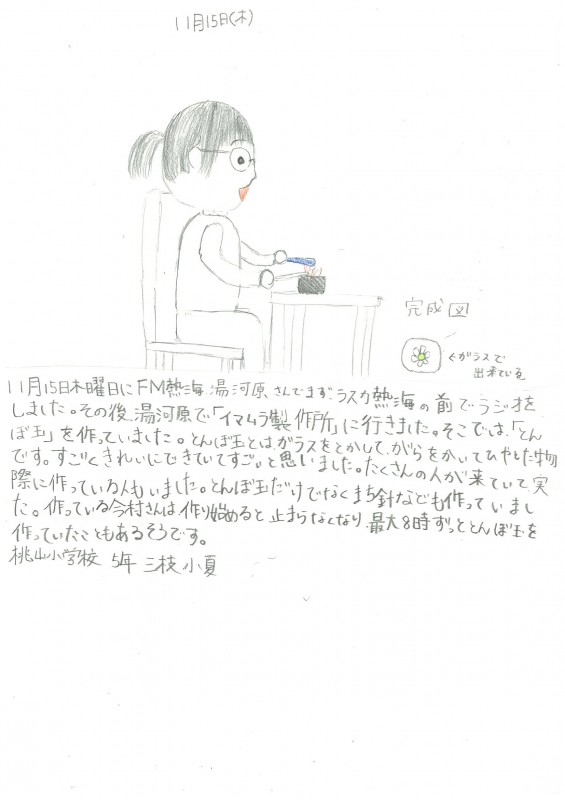 11月15日(木)
完成図
←ガラスで
出来ている
11月15日木曜日にFM熱海湯河原さんでまず、ラスカ熱海の前でラジオを
しました。その後、湯河原で「イマムラ製作所」に行きました。そこでは、「とん
ぼ玉」を作っていました。とんぼ玉とは、ガラスをとかして、がらをかいてひやした物
です。すごくきれいにできていてすごいと思いました。たくさんの人が来ていて、実
際に作っている人もいました。とんぼ玉だけでなくまち針なども作っていまし
た。作っている今村さんは、作り始めると止まらなくなり、最大8時ずっととんぼ玉を
作っていたこともあるそうです。
桃山小学校 5年 三枝小夏